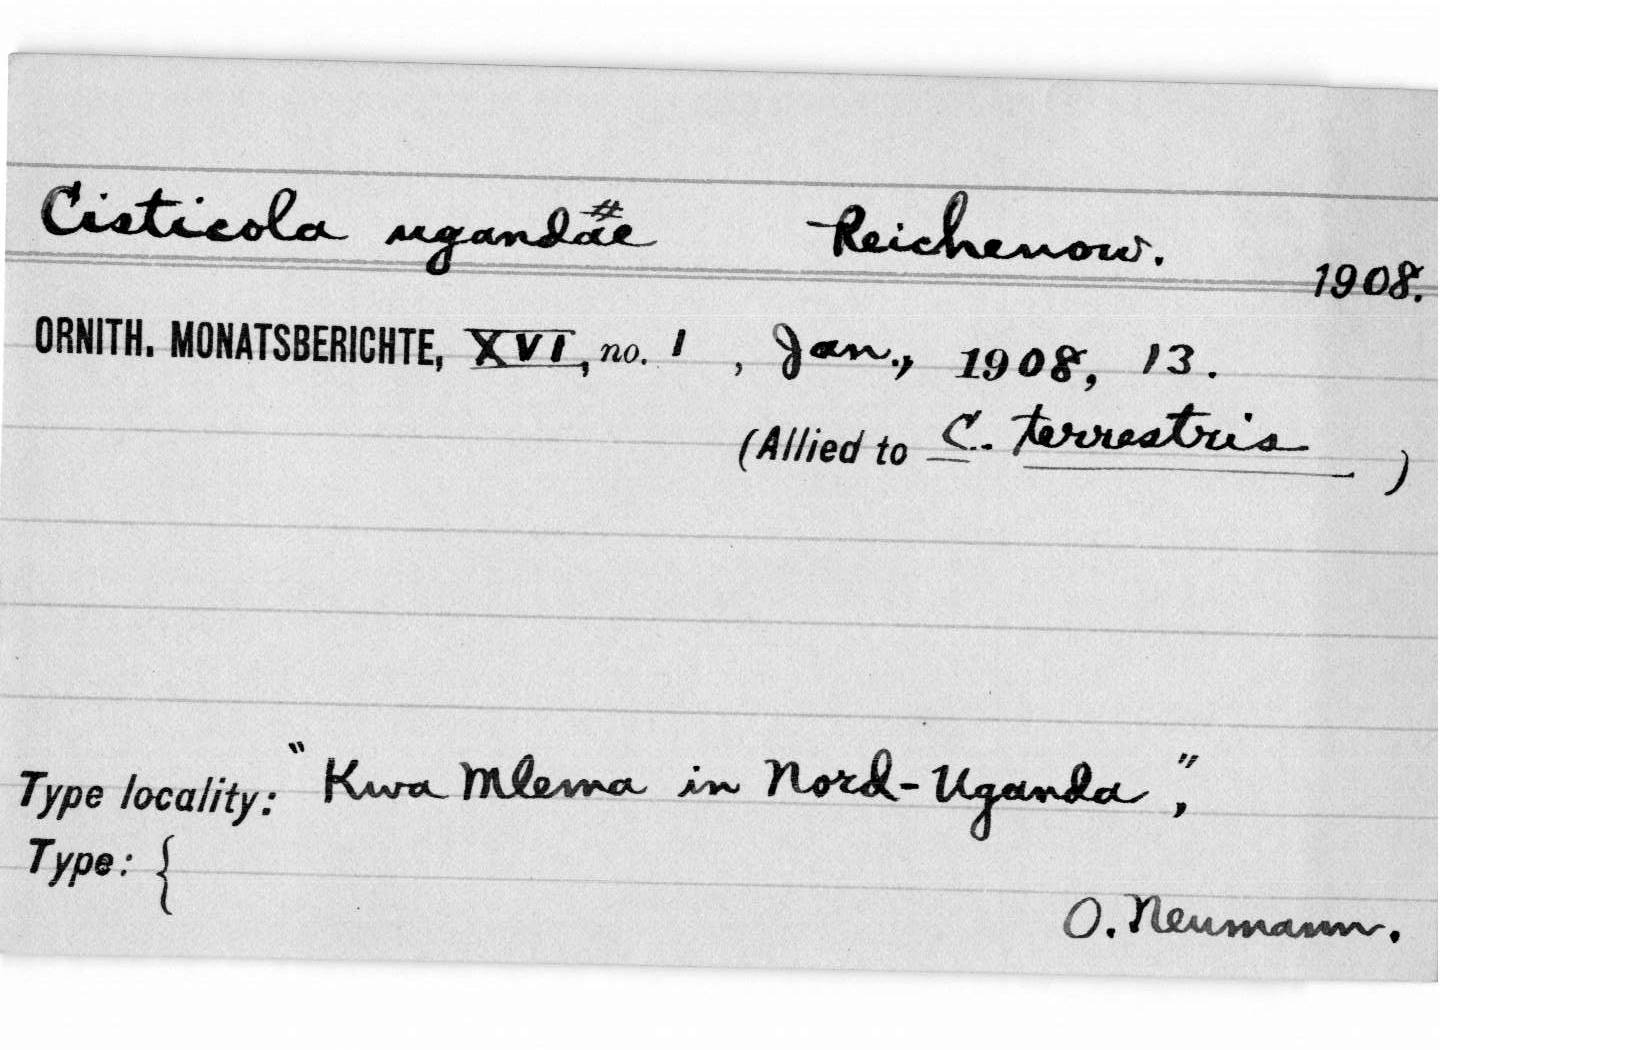 Cisticola ugandae# Reichenow. 1908.
ORNITH. MONATSBERICHTE, XVI, no. 1, Jan., 1908, 13.
(Allied to C. terrestris )
Type locality: "Kwa Mlema in Nord-Uganda,"
Type: {
O. Neumann.